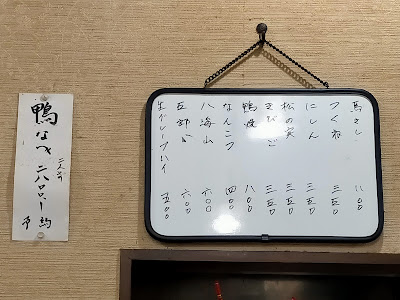 馬さし 八〇〇
つくね 三五〇
にしん 三五〇
松の実 三五〇
三五〇
鴨焼 八〇〇
なんこつ 四〇〇
八海山 六〇〇
六〇〇
生グレープハイ 五〇〇
鴨なべ 二八〇〇
二人前
予約